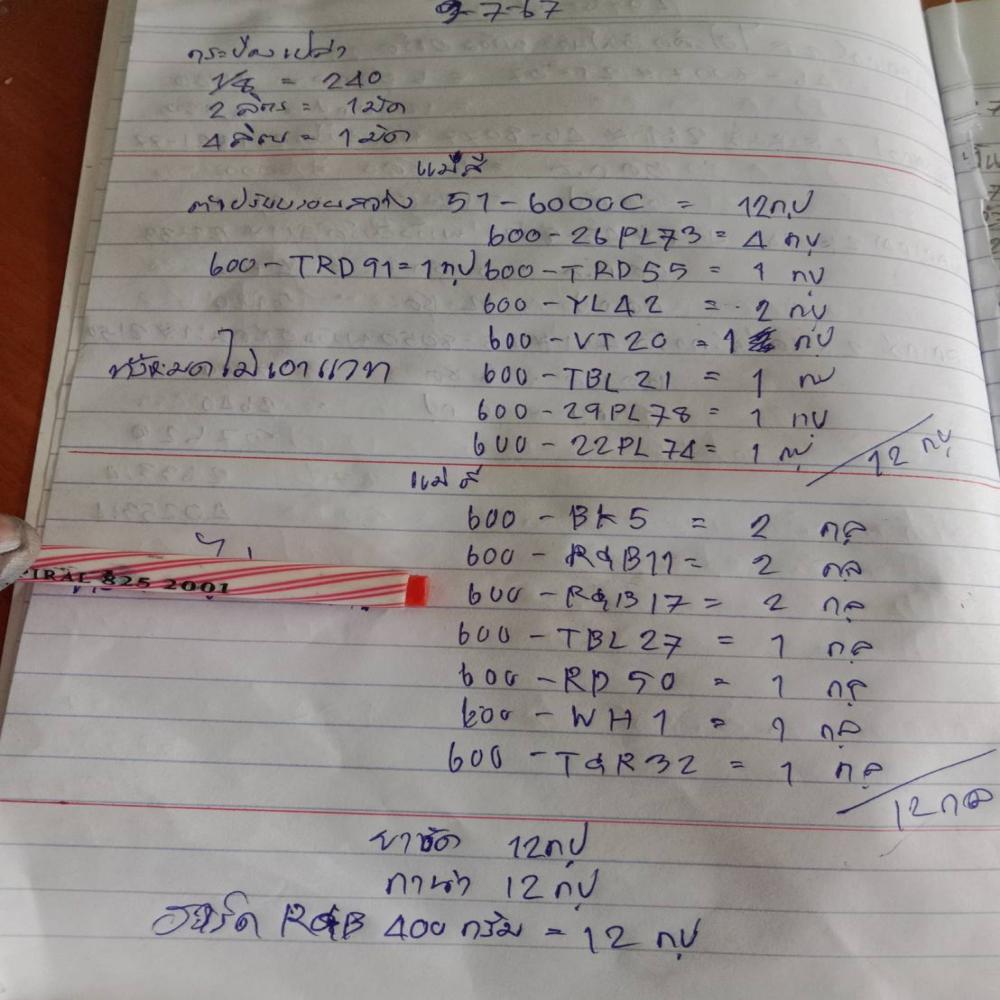 9-7-67
กระป๋องเปล่า
1/4 = 240
2 ลิตร = 1มัด
4 ลิตร = 1มัด
แม่สี
51-6000C = 12กป
600-26PL73 = 4 กป
600-TRD91=1กป 600-TRD55 = 1 กป
600-YL42 = 2 กป
600-VT20 = 1 กป
ทั้งหมดไม่เอาแวท 600-TBL21 = 1 กป
600-29PL78 = 1 กป
600-22PL74= 1 กป
12 กป
แม่สี
600-BK5 = 2 กล
600-RGB11= 2 กล
TRAL 825 2001 600-RGB17= 2 กล
600-TBL27 = 1 กล
600-RD50 = 1 กล
600-WH1 = 1 กล
600-TGR32 = 1 กล
12กล
ยาขัด 12กป
กาน้ำ 12กป
RGB 400 กรัม = 12 กป